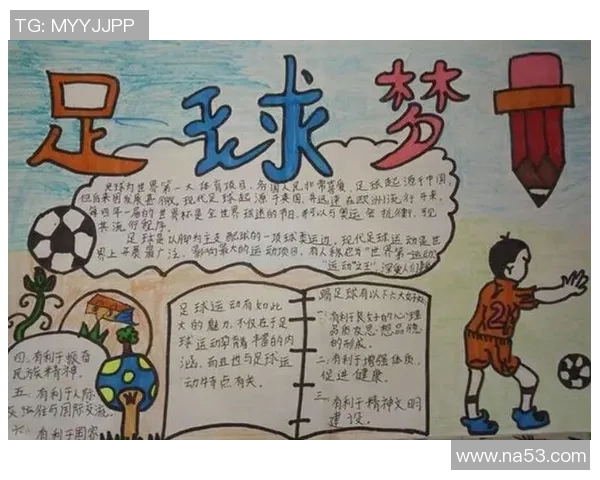 TG: MYYJJPP
足球梦
足球为世界第一大体育项目，各国人民非常喜爱，足球起源于中国，
但后来因发展甚微，现代足球源于英国，并迅速在欧洲流行开来，
每四年一届的世界杯是全世界球迷的节日，并可以与奥运会抗衡，
足球是以脚为主支配球的一项球类运动，现代足球运动是世
界上开展最广泛，影响最大的运动项目，有人称它为"世界第一运动"
"运动"之王"，深受人们
足球运动有如此
大的魅力，不仅在于足
球运动穿丰富的内
涵，而且也与足球运
动特点有关。
踢足球有以下六大好处
一：有利于良好的心理
品质及思想品德
的形成。
二：有利于增强体质，
促进健康。
三：有利于精神文明
建设。
四：有利于振奋
民族精神。
五：有利于人际
交往与国际交流。
六：有利于国家
www.na53.com